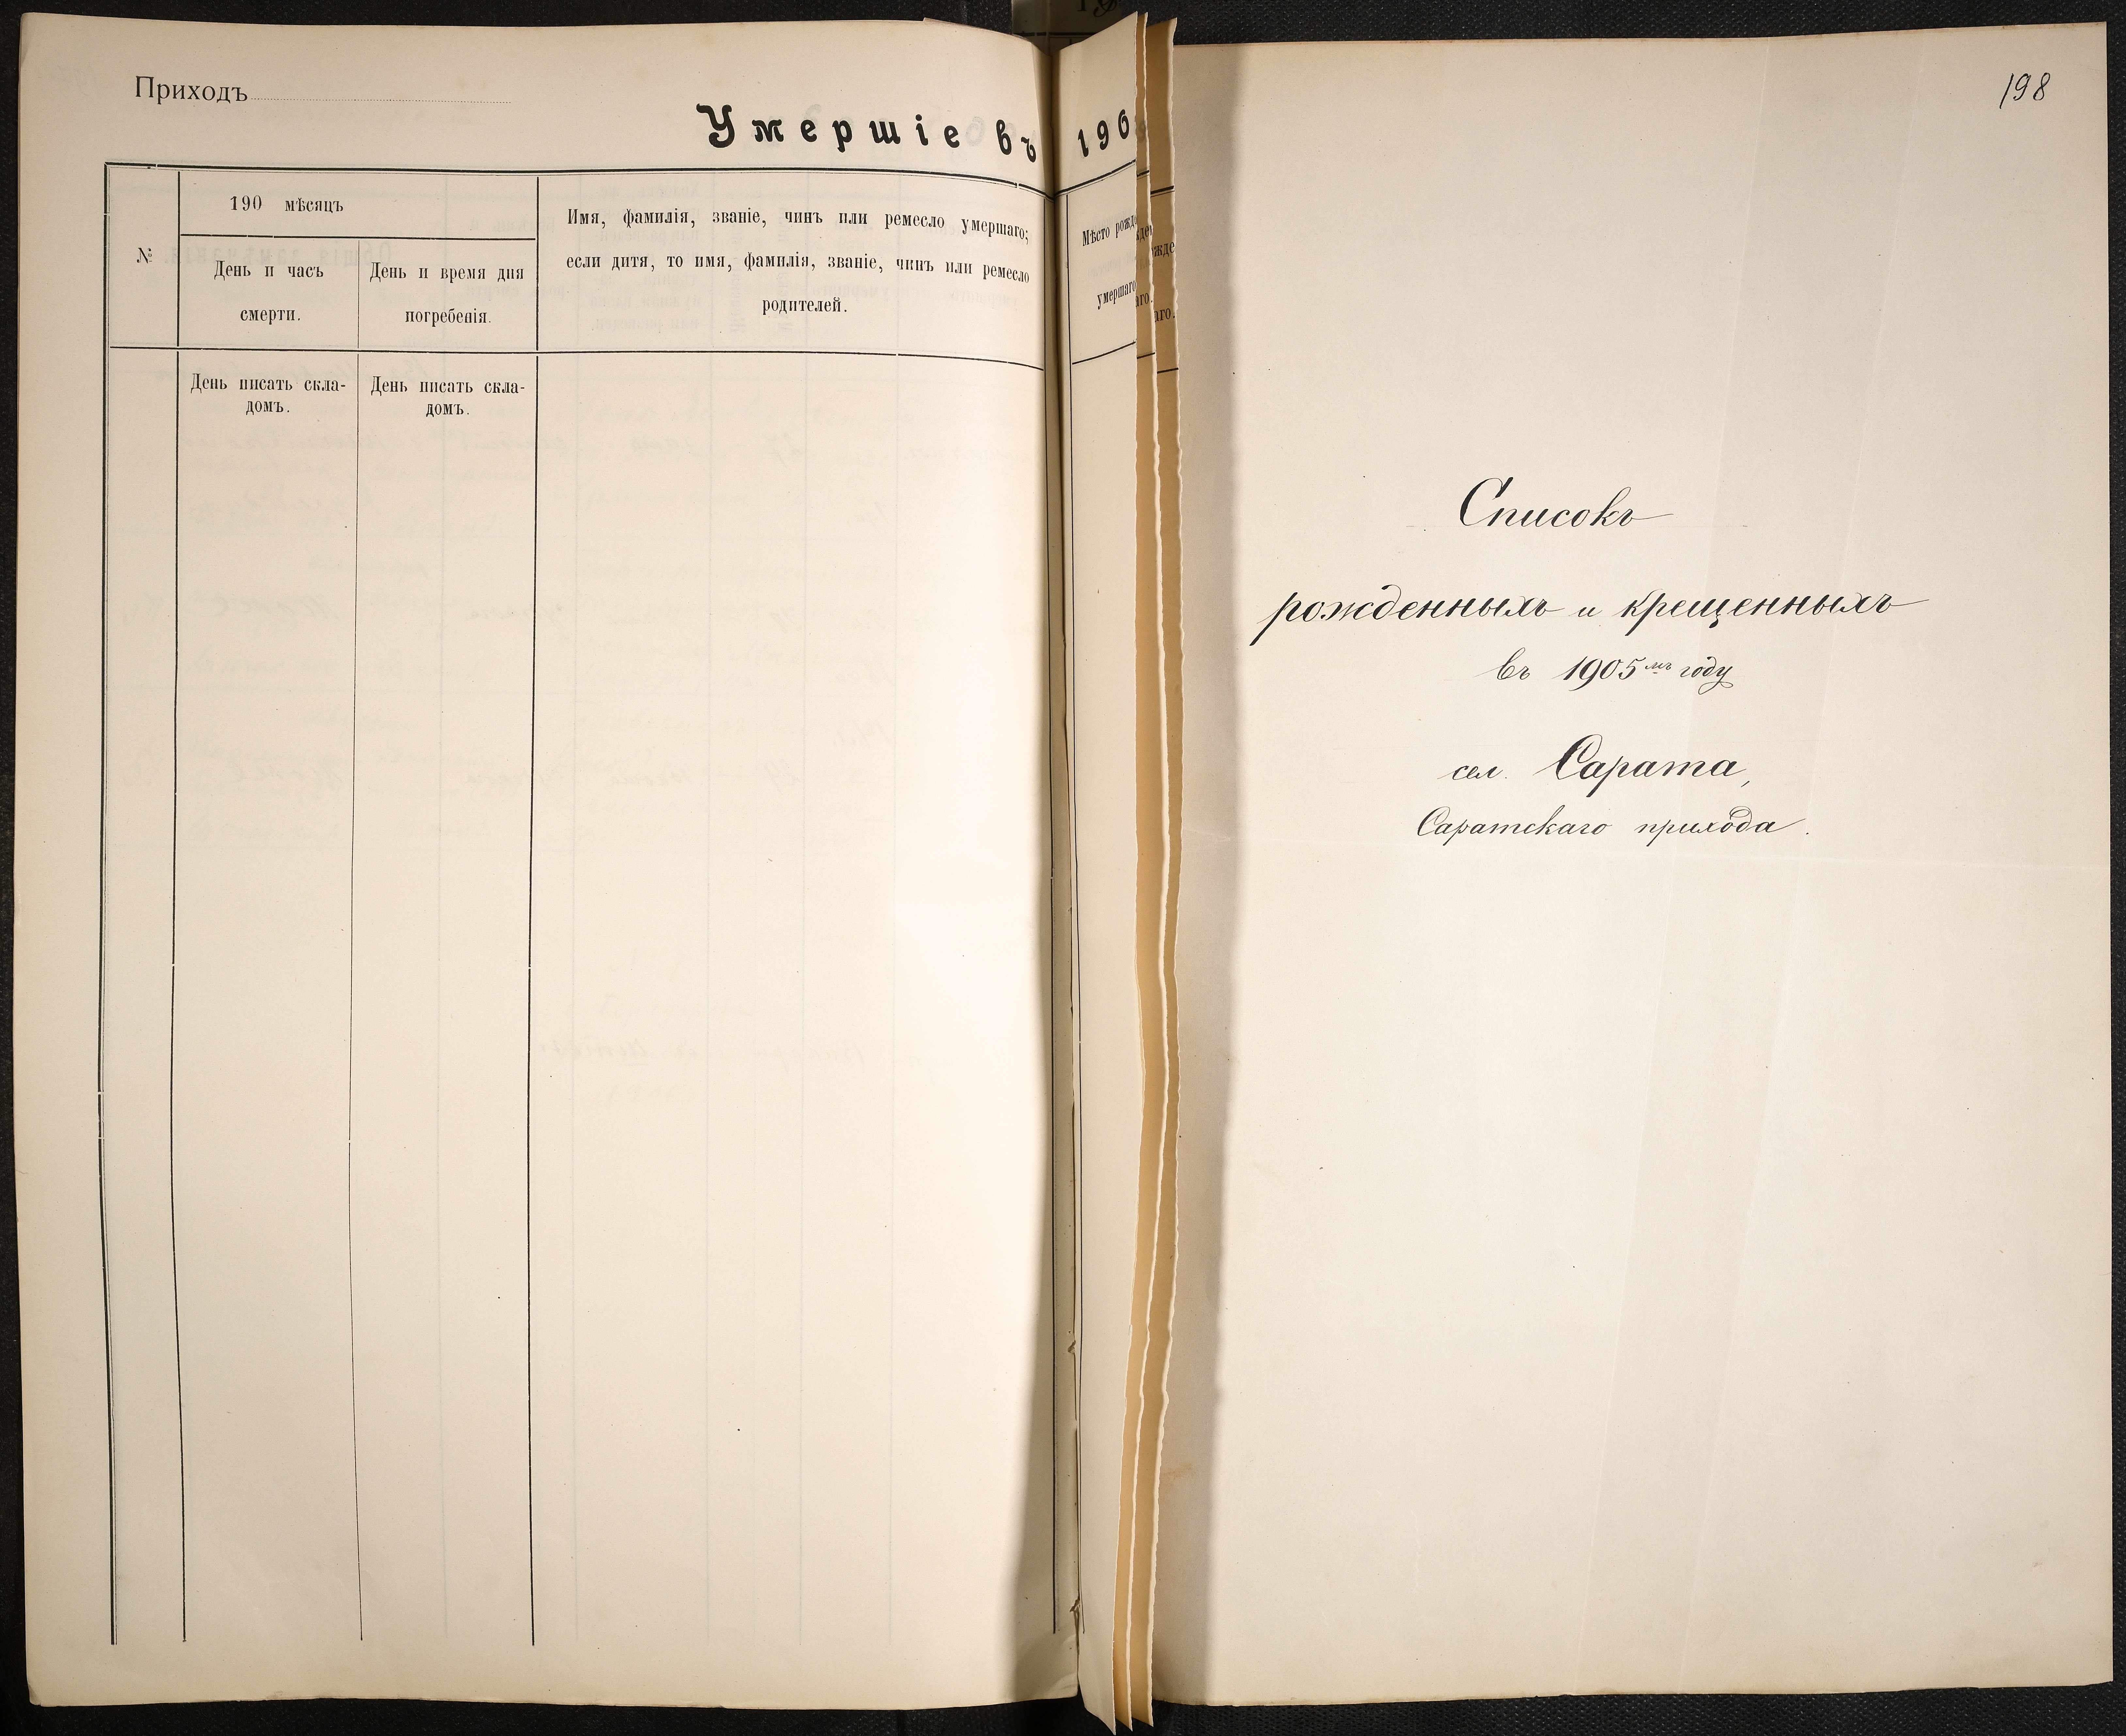 Приходъ
Умершіе въ 190
№
190 мѣсяцъ
День и часъ
смерти.
День и время дня
погребенія.
Имя, фамилія, званіе, чинъ или ремесло умершаго;
если дитя, то имя, фамилія, званіе, чинъ или ремесло
родителей.
Мѣсто рожд
умершаго
День писать скла-
домъ.
День писать скла-
домъ.
198
Списокъ
рожденныхъ и крещенныхъ
въ 1905мъ году
сел. Сарата,
Саратскаго прихода.